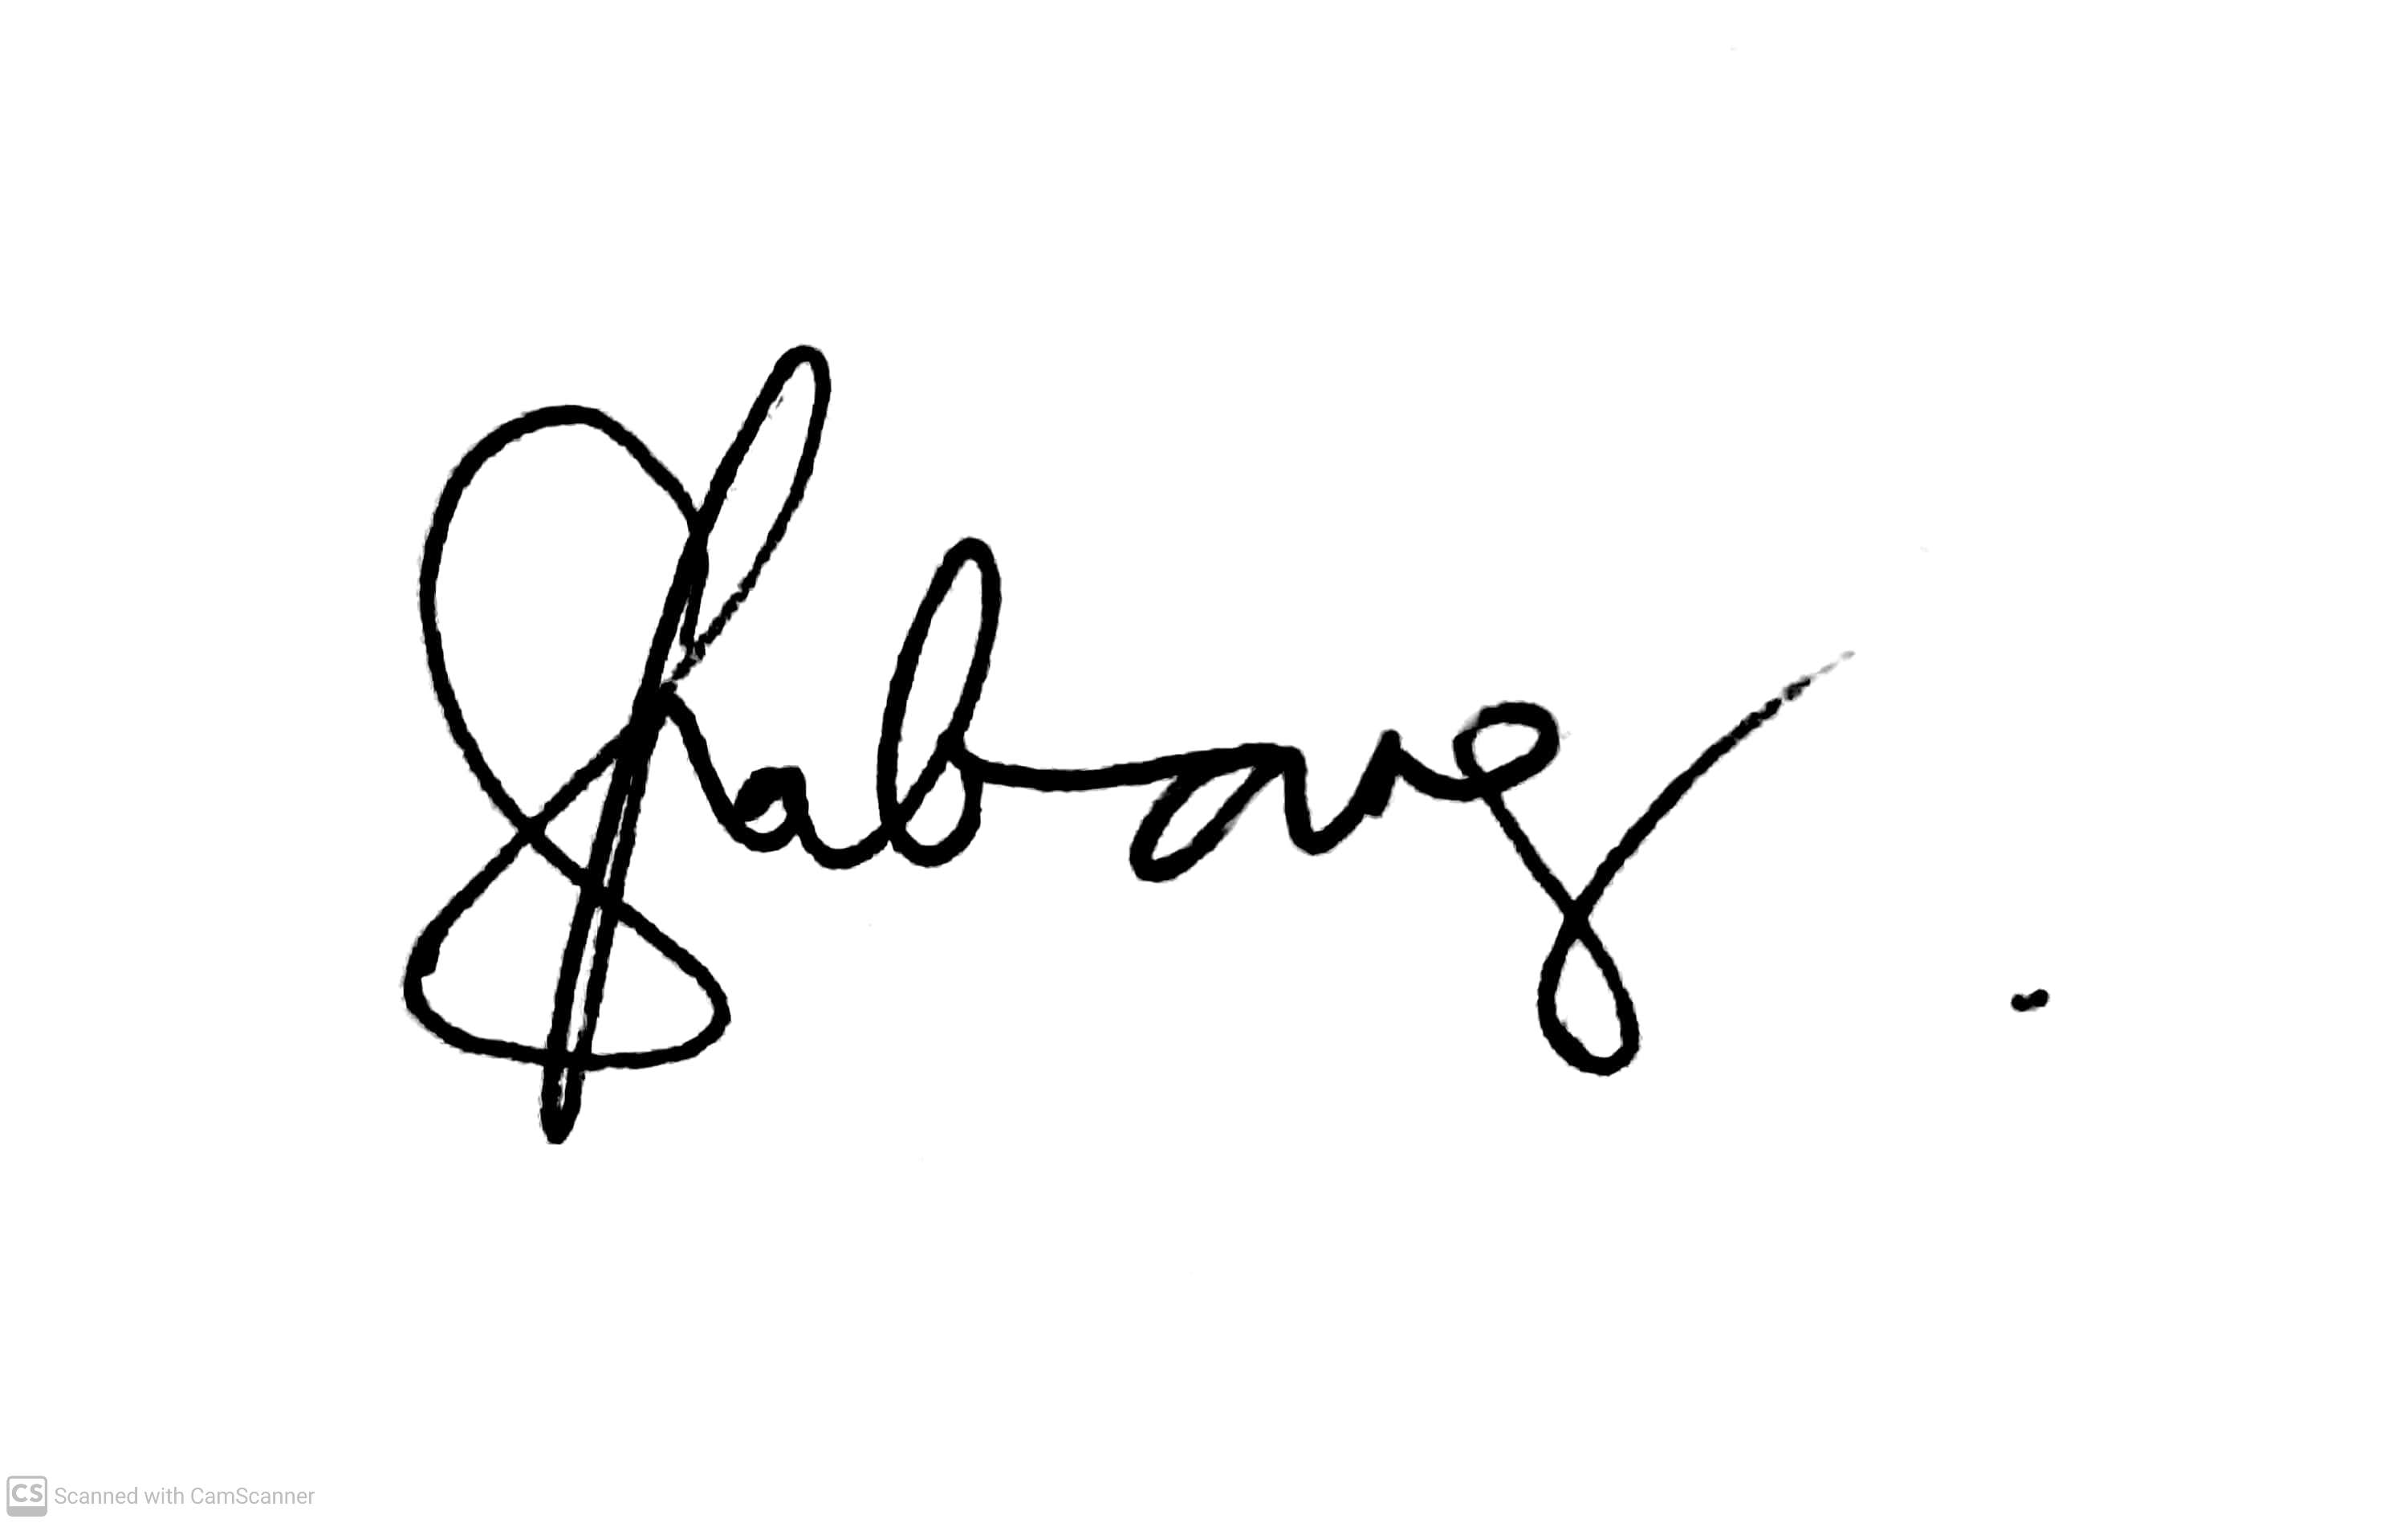 Shabarg.
CS Scanned with CamScanner